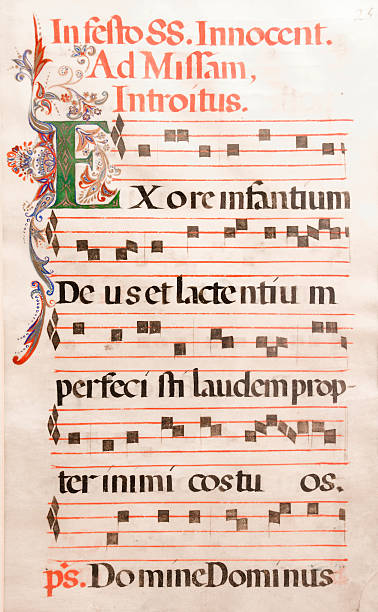 In festo SS. Innocent.
Ad Missam,
Introitus.
EX ore infantium
De us et lactentiu m
perfeci sti laudem prop-
ter inimi cos tu os.
ps. Domine Dominus